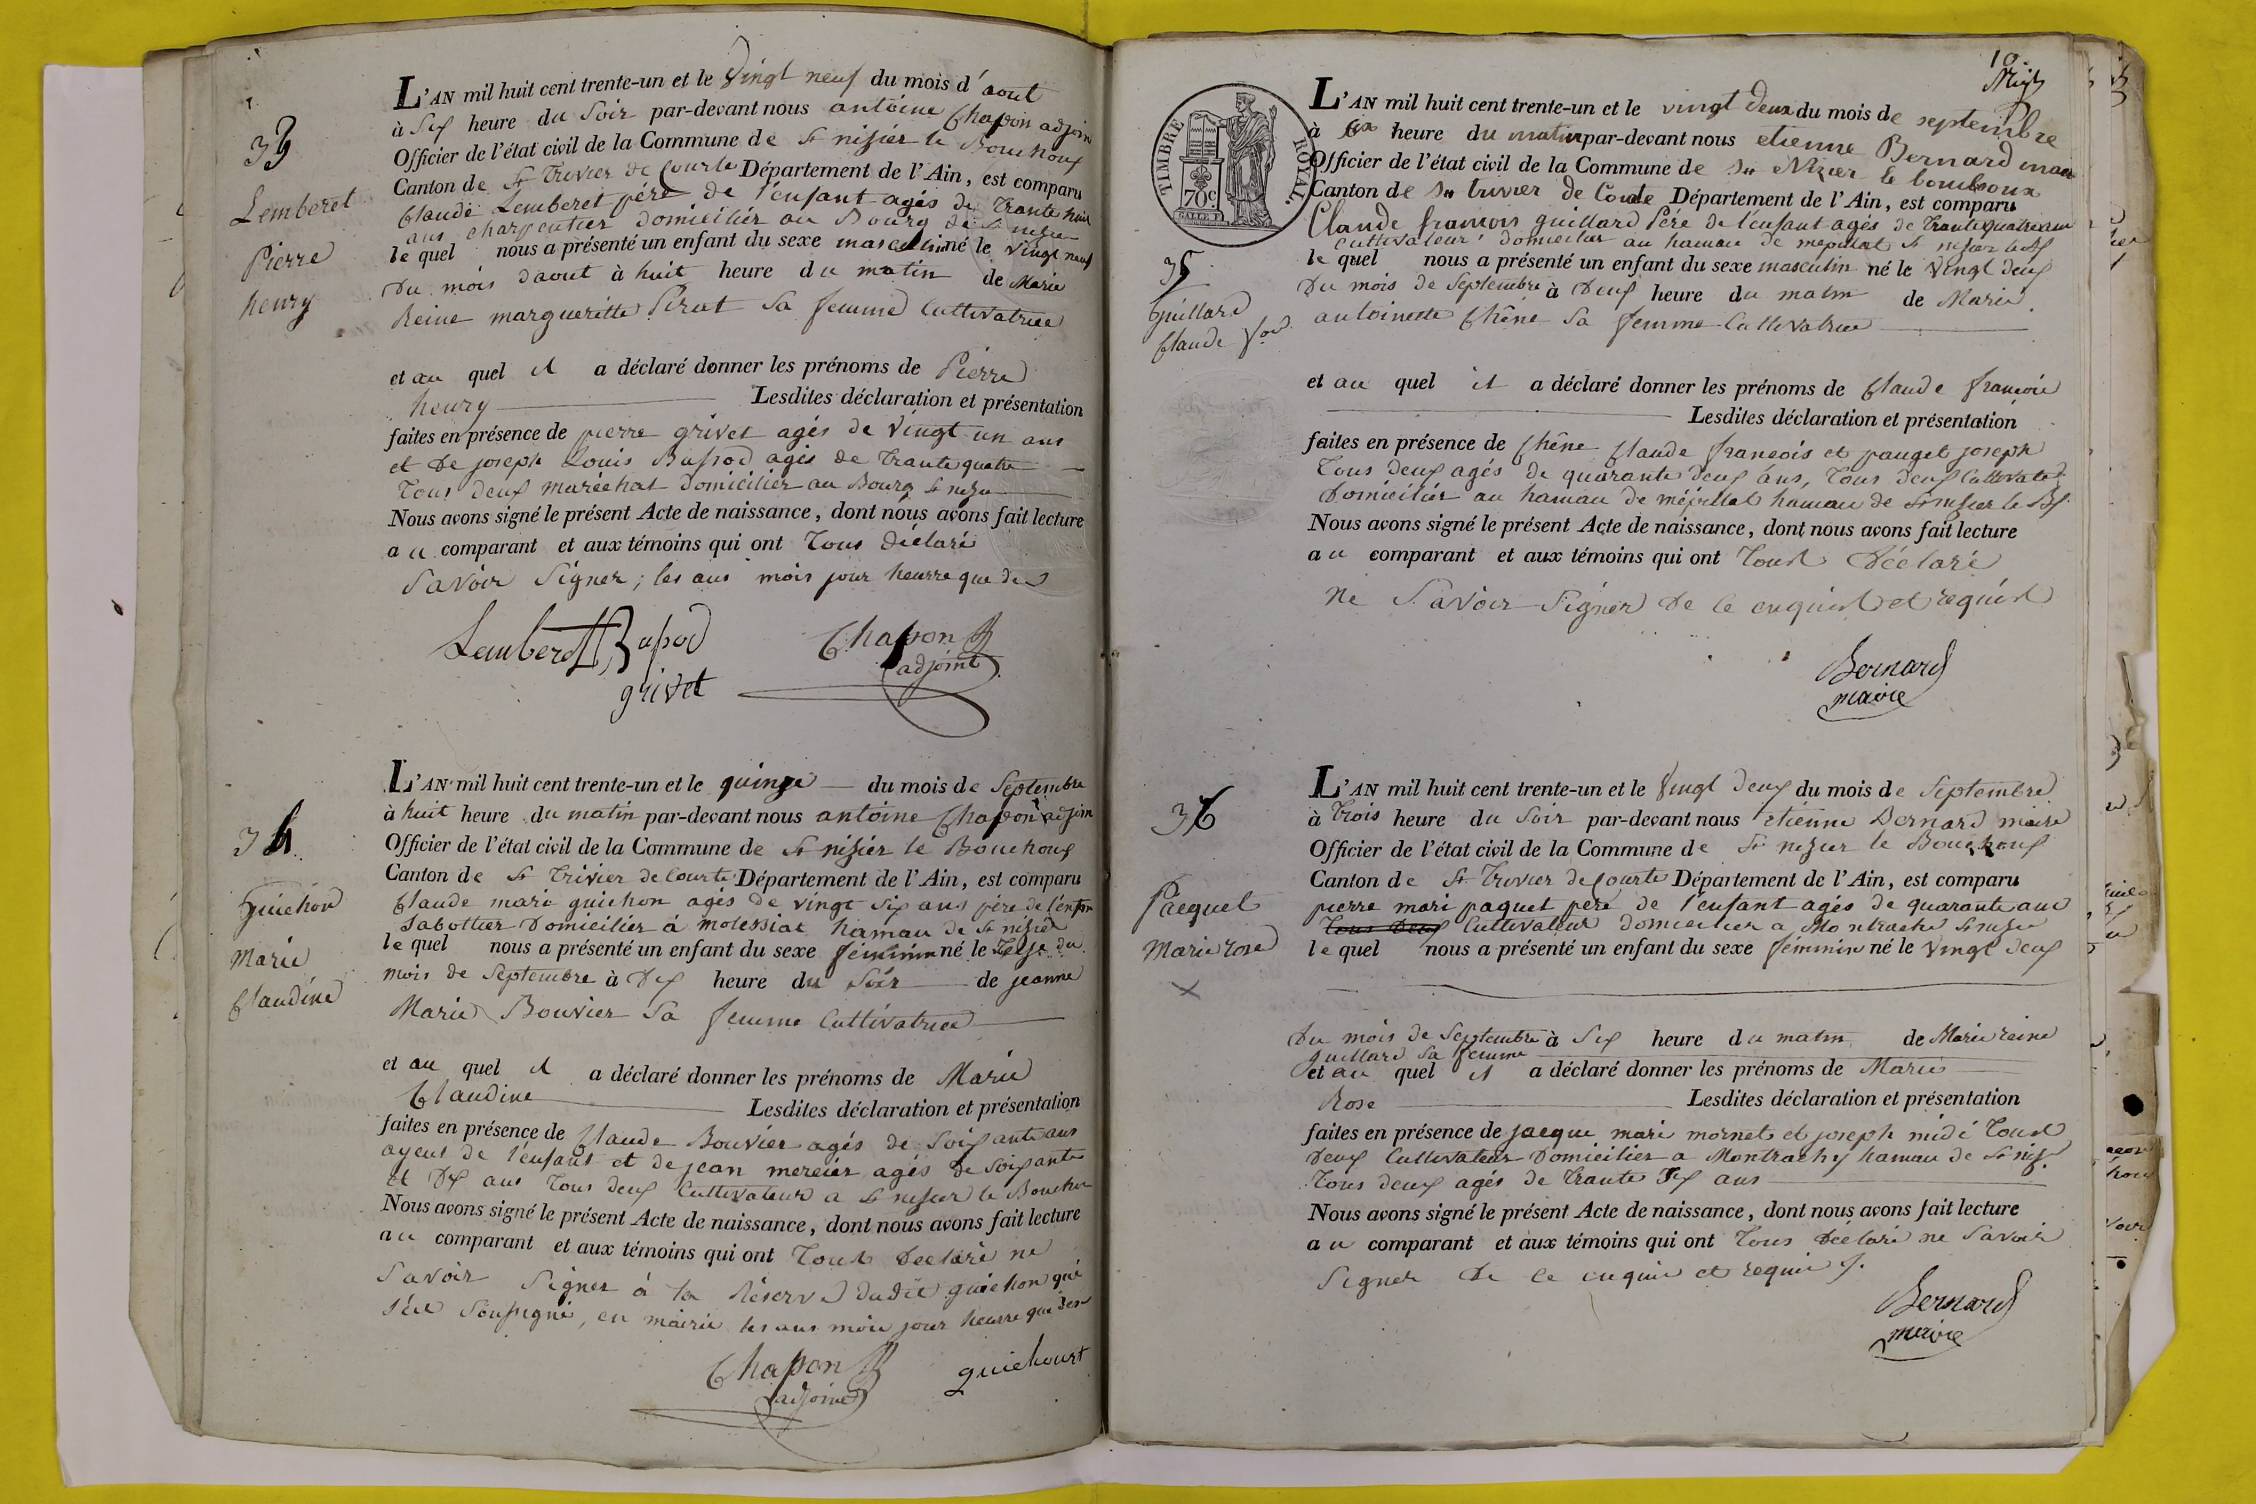 33
Lemberet
Pierre
henry
L'AN mil huit cent trente-un et le Vingt neuf du mois d'aout
à Six heure du Soir par-devant nous antoine Chapon adjoin
Officier de l'état civil de la Commune de St nisier le Bouchoux
Canton de St Trivier de Courte Département de l'Ain, est comparu
Claude Lemberet père de l'enfant agés de Trante huit
ans charpentier domicilier au Bourg de St nisier
le quel nous a présenté un enfant du sexe masculin né le vingt neuf
Du mois daout à huit heure du matin de Marie
Reine margueritte Pirat Sa femme Cultivatrice
et au quel il a déclaré donner les prénoms de Pierre
henry Lesdites déclaration et présentation
faites en présence de pierre grivet agés de Vingt un ans
et De joseph Louis Bussod agés de Trante quatre
Tous deux maréchal domicilier au Bourg St nizier
Nous avons signé le présent Acte de naissance, dont nous avons fait lecture
au comparant et aux témoins qui ont Tous déclaré
Savoir Signer; les ans mois jour heurre que des
Lemberet Bussod Chapon
adjoint
grivet
34
Guichon
Marie
Claudine
L'AN mil huit cent trente-un et le quinze du mois de Septembre
à huit heure du matin par-devant nous antoine Chapon adjoin
Officier de l'état civil de la Commune de St nisier le Bouchoux
Canton de St Trivier de Courte Département de l'Ain, est comparu
Claude mari guichon agés de vingt six ans père de l'enfan
Sabottier Domicilier à molessiat hamau de St nisier
le quel nous a présenté un enfant du sexe féminin né le Tresse du
mois de Septembre à Dix heure du Soir de jeanne
Marie Bouvier Sa femme Cultivatrice
et au quel il a déclaré donner les prénoms de Marie
Claudine Lesdites déclaration et présentation
faites en présence de Claude Bouvier agés de Soixante ans
ayeul de l'enfant et de jean mercier agés de Soixante
et Dix ans Tous deux Cultivateur a St nisier le Bouchou
Nous avons signé le présent Acte de naissance, dont nous avons fait lecture
au comparant et aux témoins qui ont Tous Déclaré ne
Savoir Signer à la Réserve Dudit guichon qui
s'est Soussigné, en mairie les ans mois jour heurre que des
Chapon guichourt
adjoint
10
TIMBRE ROYAL
70c
35
Guillard
Claude fois
L'AN mil huit cent trente-un et le vingt deux du mois de septembre
à six heure du matin par-devant nous etienne Bernard maire
Officier de l'état civil de la Commune de St Nizier le bouchoux
Canton de St trivier de Courte Département de l'Ain, est comparu
Claude francois guillard Père de l'enfant agés de Trante quatre ans
Cultivateur domicilier au hamau de mepillat St nisier le Bx
le quel nous a présenté un enfant du sexe masculin né le Vingt deux
Du mois de Septembre à Deux heure du matin de Marie
antoinette Chêne Sa femme Cultivatrice
et au quel il a déclaré donner les prénoms de Claude francois
Lesdites déclaration et présentation
faites en présence de Chêne Claude francois et pauget joseph
Tous deux agés de quarante deux ans, Tous deux Cultivateur
Domicilier au hamau de mépillat hamau de St nisier le Bx.
Nous avons signé le présent Acte de naissance, dont nous avons fait lecture
au comparant et aux témoins qui ont Tous Déclaré
Ne Savoir Signer De ce enquist et requist
Bernard
maire
36
Pacquet
Marie rose
L'AN mil huit cent trente-un et le Vingt deux du mois de Septembre
à Trois heure du Soir par-devant nous etienne Bernard maire
Officier de l'état civil de la Commune de St nizier le Bouchoux
Canton de St Trivier de Courte Département de l'Ain, est comparu
pierre mari paquet père de l'enfant agés de quarante ans
Tous Deux Cultivateur domicilier a Montrachy St nizier
le quel nous a présenté un enfant du sexe féminin né le Vingt deux
Du mois de Septembre à Six heure du matin de Marie reine
guillard Sa femme
et au quel il a déclaré donner les prénoms de Marie
Rose Lesdites déclaration et présentation
faites en présence de jacque mari mornet et joseph midi Tous
Deux Cultivateur Domicilier a Montrachy hamau de St nisr
Tous deux agés de Trante Six ans
Nous avons signé le présent Acte de naissance, dont nous avons fait lecture
au comparant et aux témoins qui ont Tous Déclaré ne Savoir
Signer De ce enquis et requis
Bernard
maire